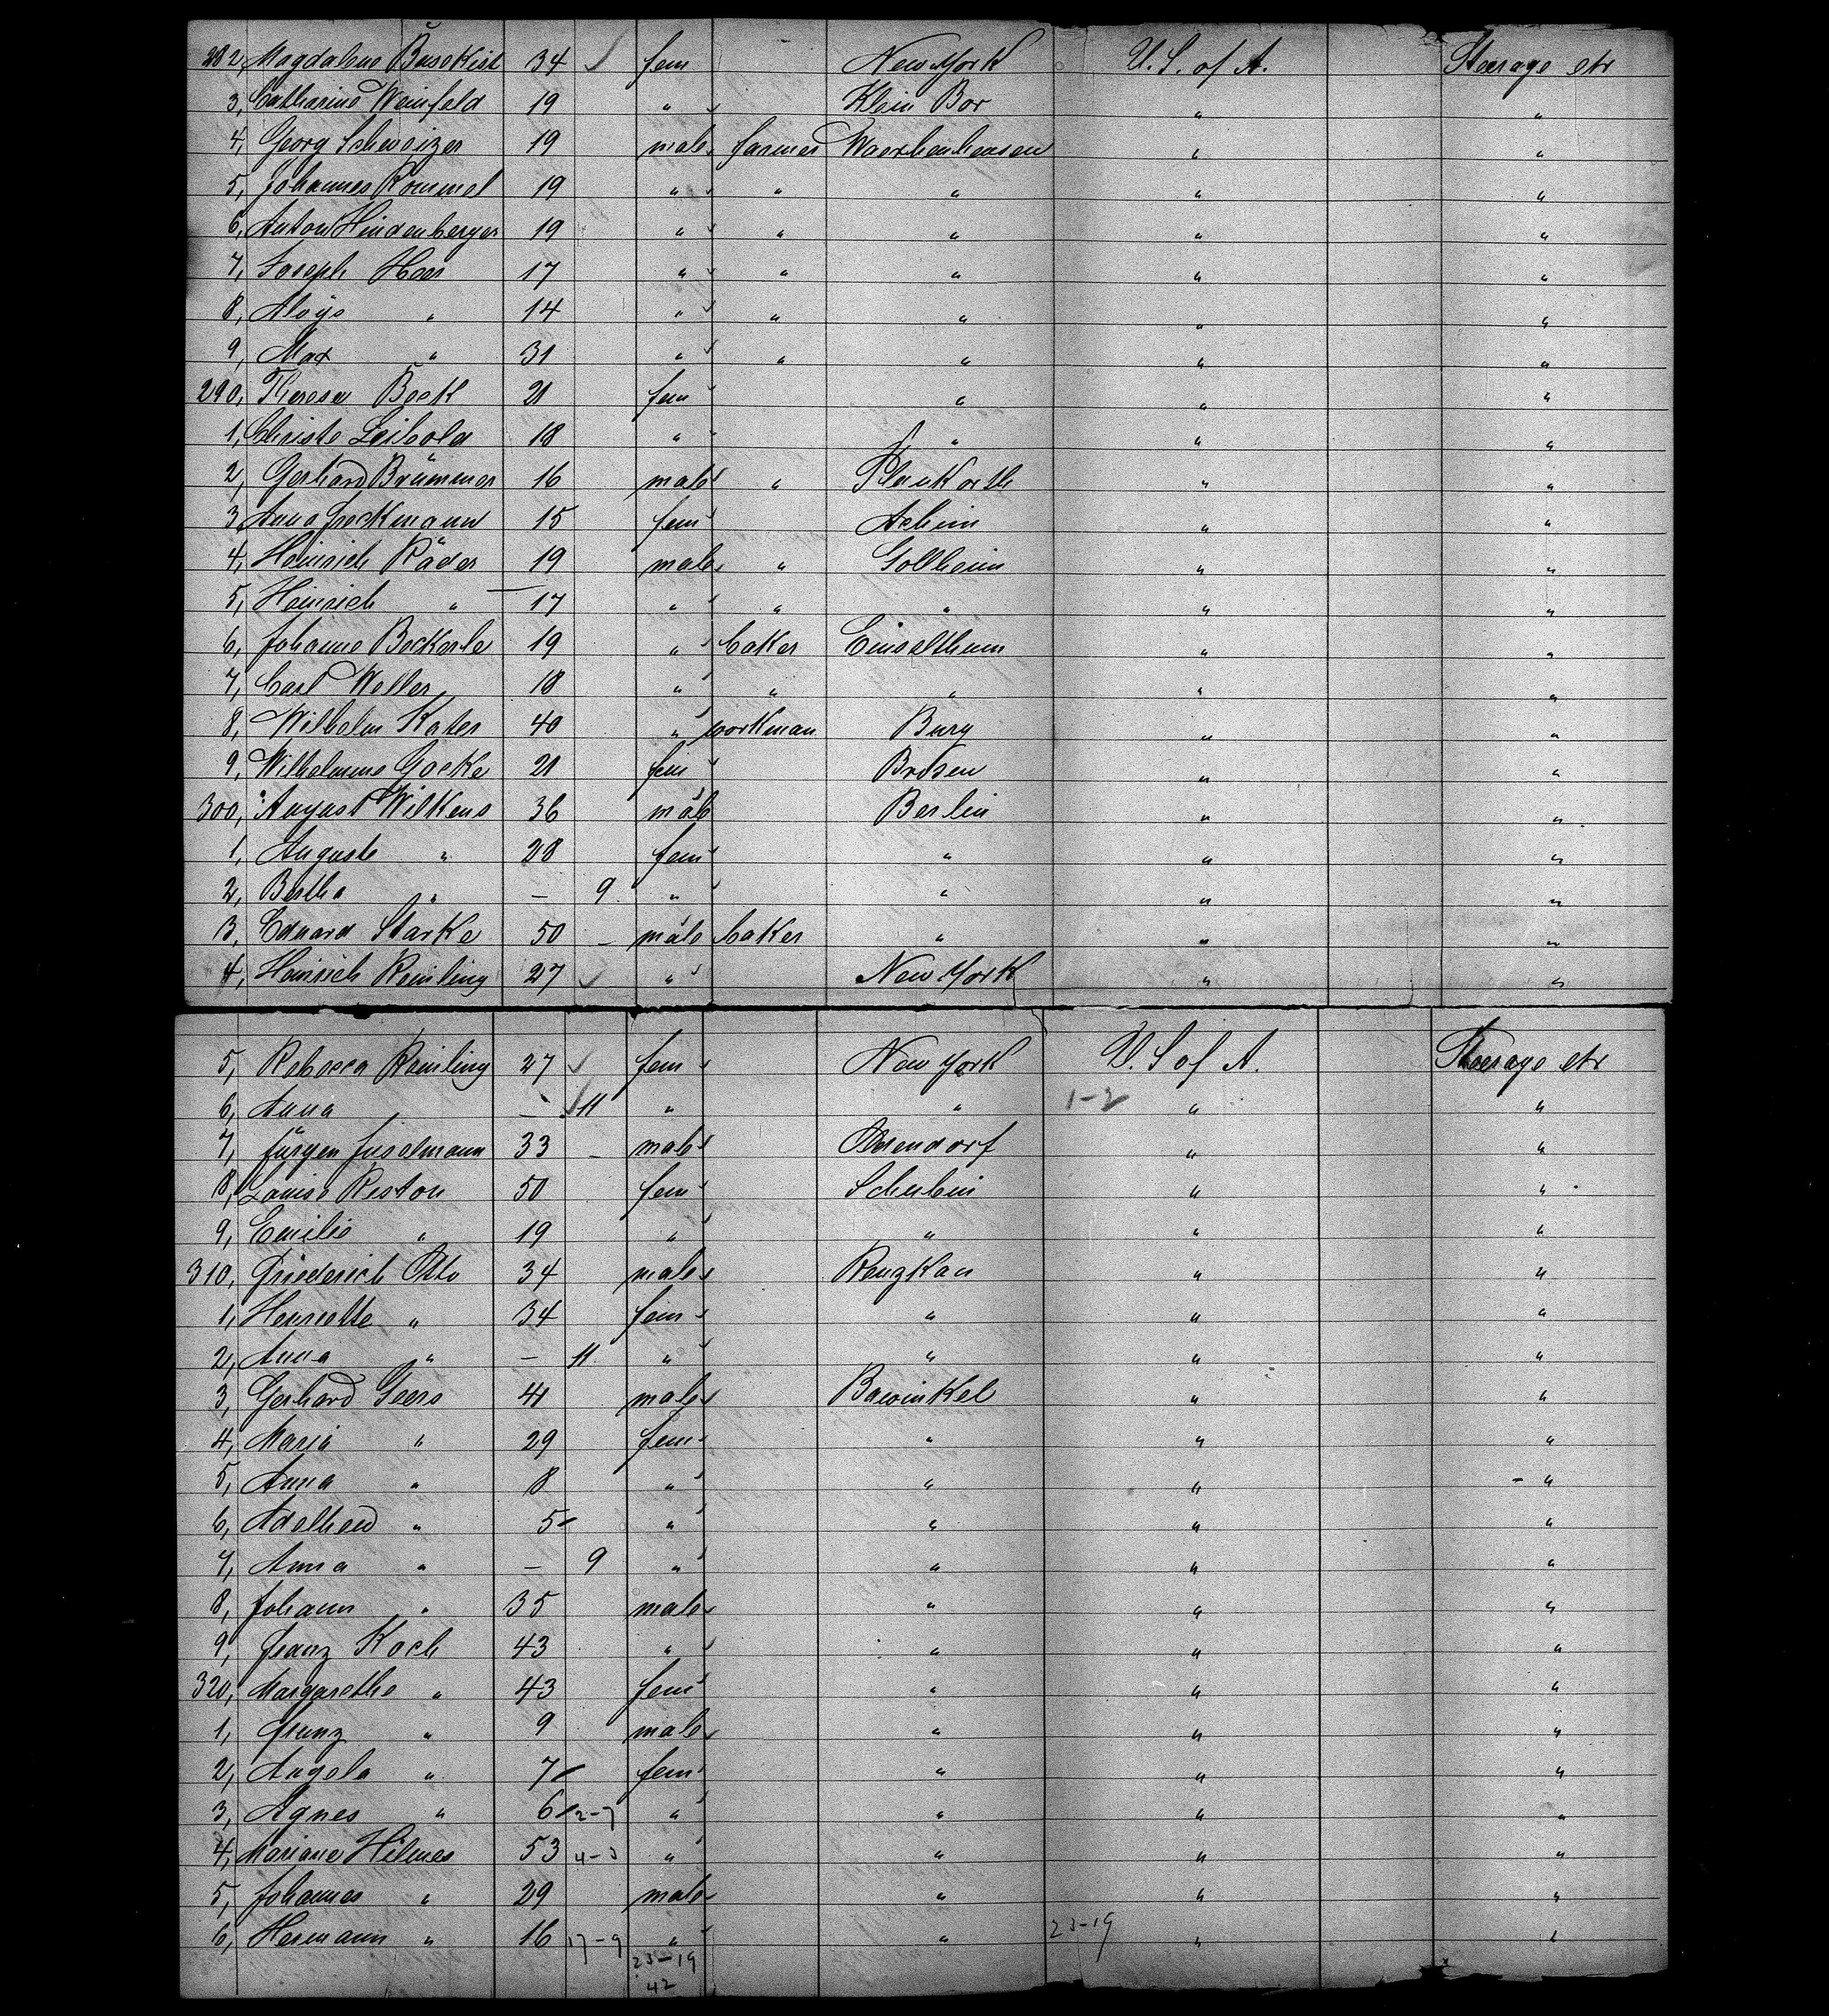 282, Magdalene Busekist 34 ✓ fem New York U. S. of A. Steerage etr
3, Catharine Weinfeld 19 " Klein Bor " "
4, Georg Schweizer 19 male farmer Waechenheusen " "
5, Johannes Rommel 19 " " " " "
6, Anton Hindenberger 19 " " " " "
7, Joseph Haas 17 " " " " "
8, Aloys " 14 " " " " "
9, Max " 31 " " " " "
290, Therese Beck 21 fem " " "
1, Christe Leibold 18 " " " "
2, Gerhard Brümmer 16 male " Plenkorth " "
3, Anna Jeckmann 15 fem Achim " "
4, Heinrich Räder 19 male " Gollheim " "
5, Heinrich " 17 " " " " "
6, Johanne Beckerle 19 " baker Einselthum " "
7, Carl Weller 18 " " " " "
8, Wilhelm Kater 40 " workman Burg " "
9, Wilhelmine Gocke 21 fem Brösen " "
300, August Wilkens 36 male Berlin " "
1, Auguste " 28 fem " " "
2, Bertha " — 9 " " " "
3, Eduard Starke 50 male baker " " "
4, Heinrich Reuling 27 ✓ " New York " "
5, Rebecca Reuling 27 ✓ fem New York U. S of A. Steerage etr
6, Anna — 11 " " 1-2 " "
7, Jürgen Juselmann 33 male Odendorf " "
8, Louise Reston 50 fem Schubin " "
9, Emilie " 19 " " " "
310, Friederich Otto 34 male Renzkau " "
1, Henriette " 34 fem " " "
2, Anna " — 11 " " " "
3, Gerhard Geers 41 male Bawinkel " "
4, Maria " 29 fem " " "
5, Anna " 8 " " " "
6, Adelheid " 5 " " " "
7, Anna " — 9 " " " "
8, Johann " 35 male " " "
9, Franz Koch 43 " " " "
320, Margarethe " 43 fem " " "
1, Franz " 9 male " " "
2, Angela " 7 fem " " "
3, Agnes " 6 2-7 " " " "
4, Mariane Hilmes 53 4-3 " " " "
5, Johannes " 29 male " " "
6, Hermann " 16 17-9 " " 23-19 " "
23-19
42